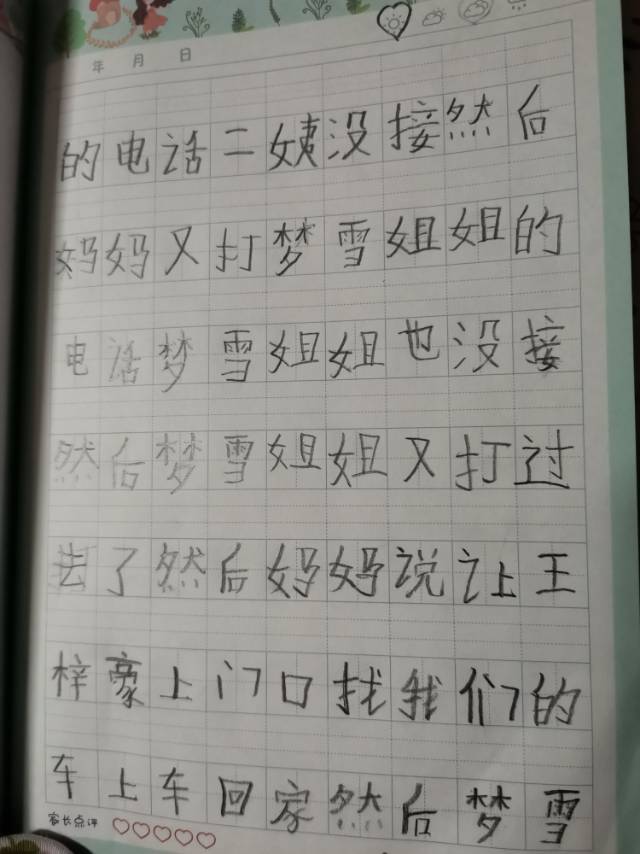 年 月 日
的电话二姨没接然后
妈妈又打梦雪姐姐的
电话梦雪姐姐也没接
然后梦雪姐姐又打过
去了然后妈妈说让王
梓豪上门口找我们的
车上车回家然后梦雪
家长点评